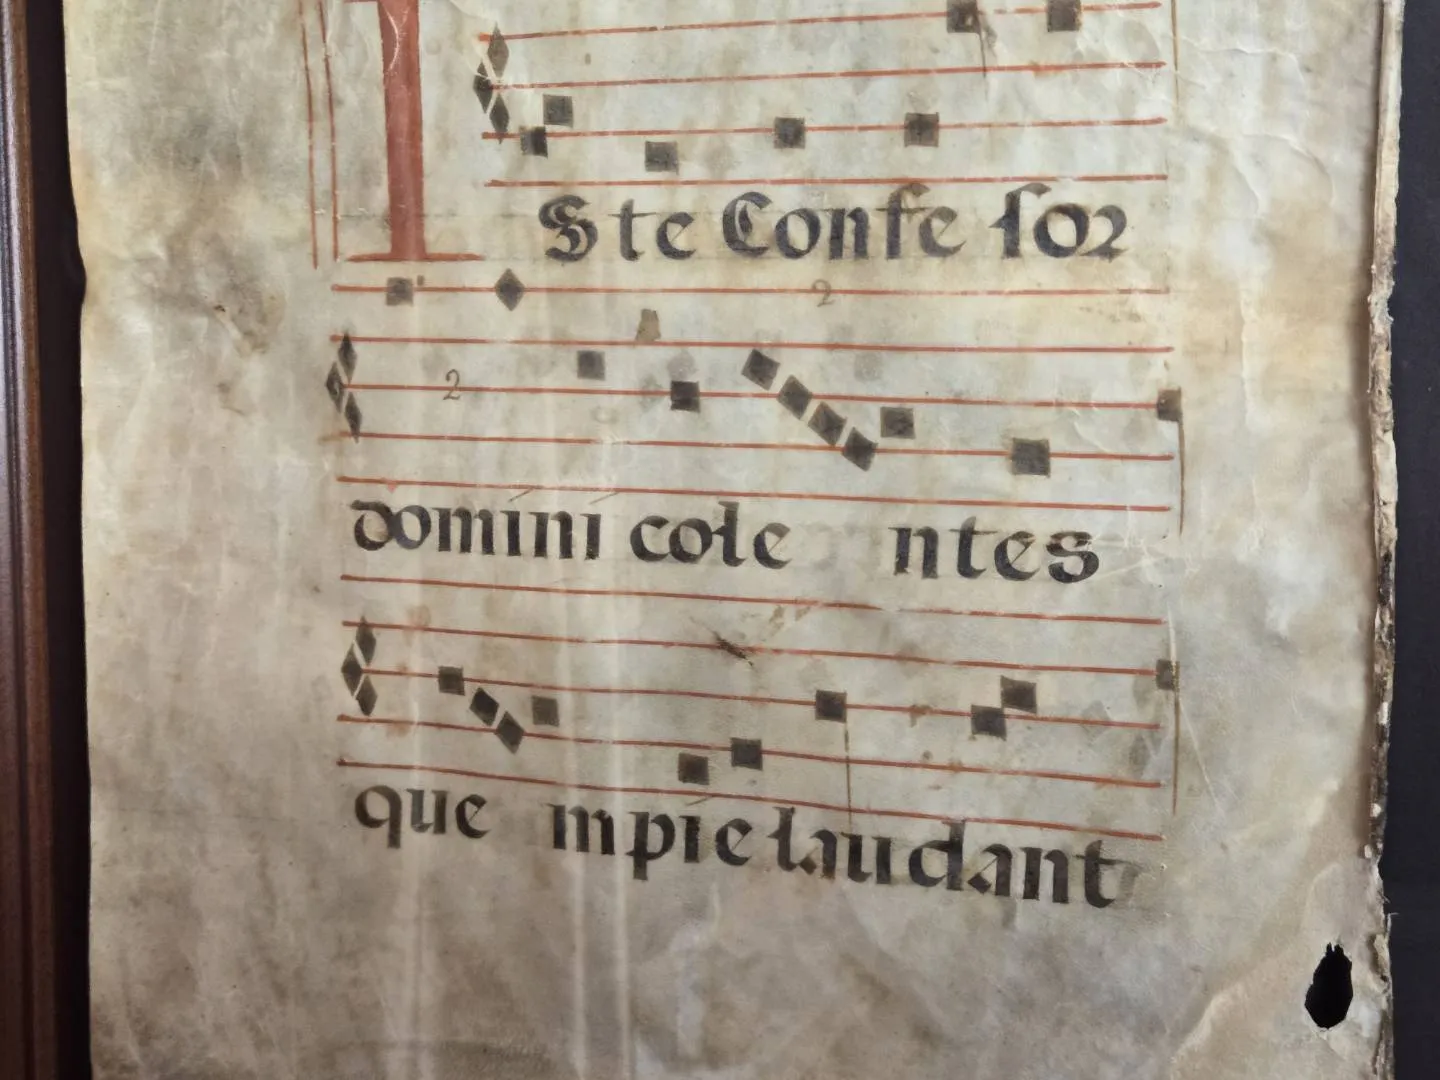 I
Ste Confe ſor
2
2
domini cole ntes
que mpie laudant